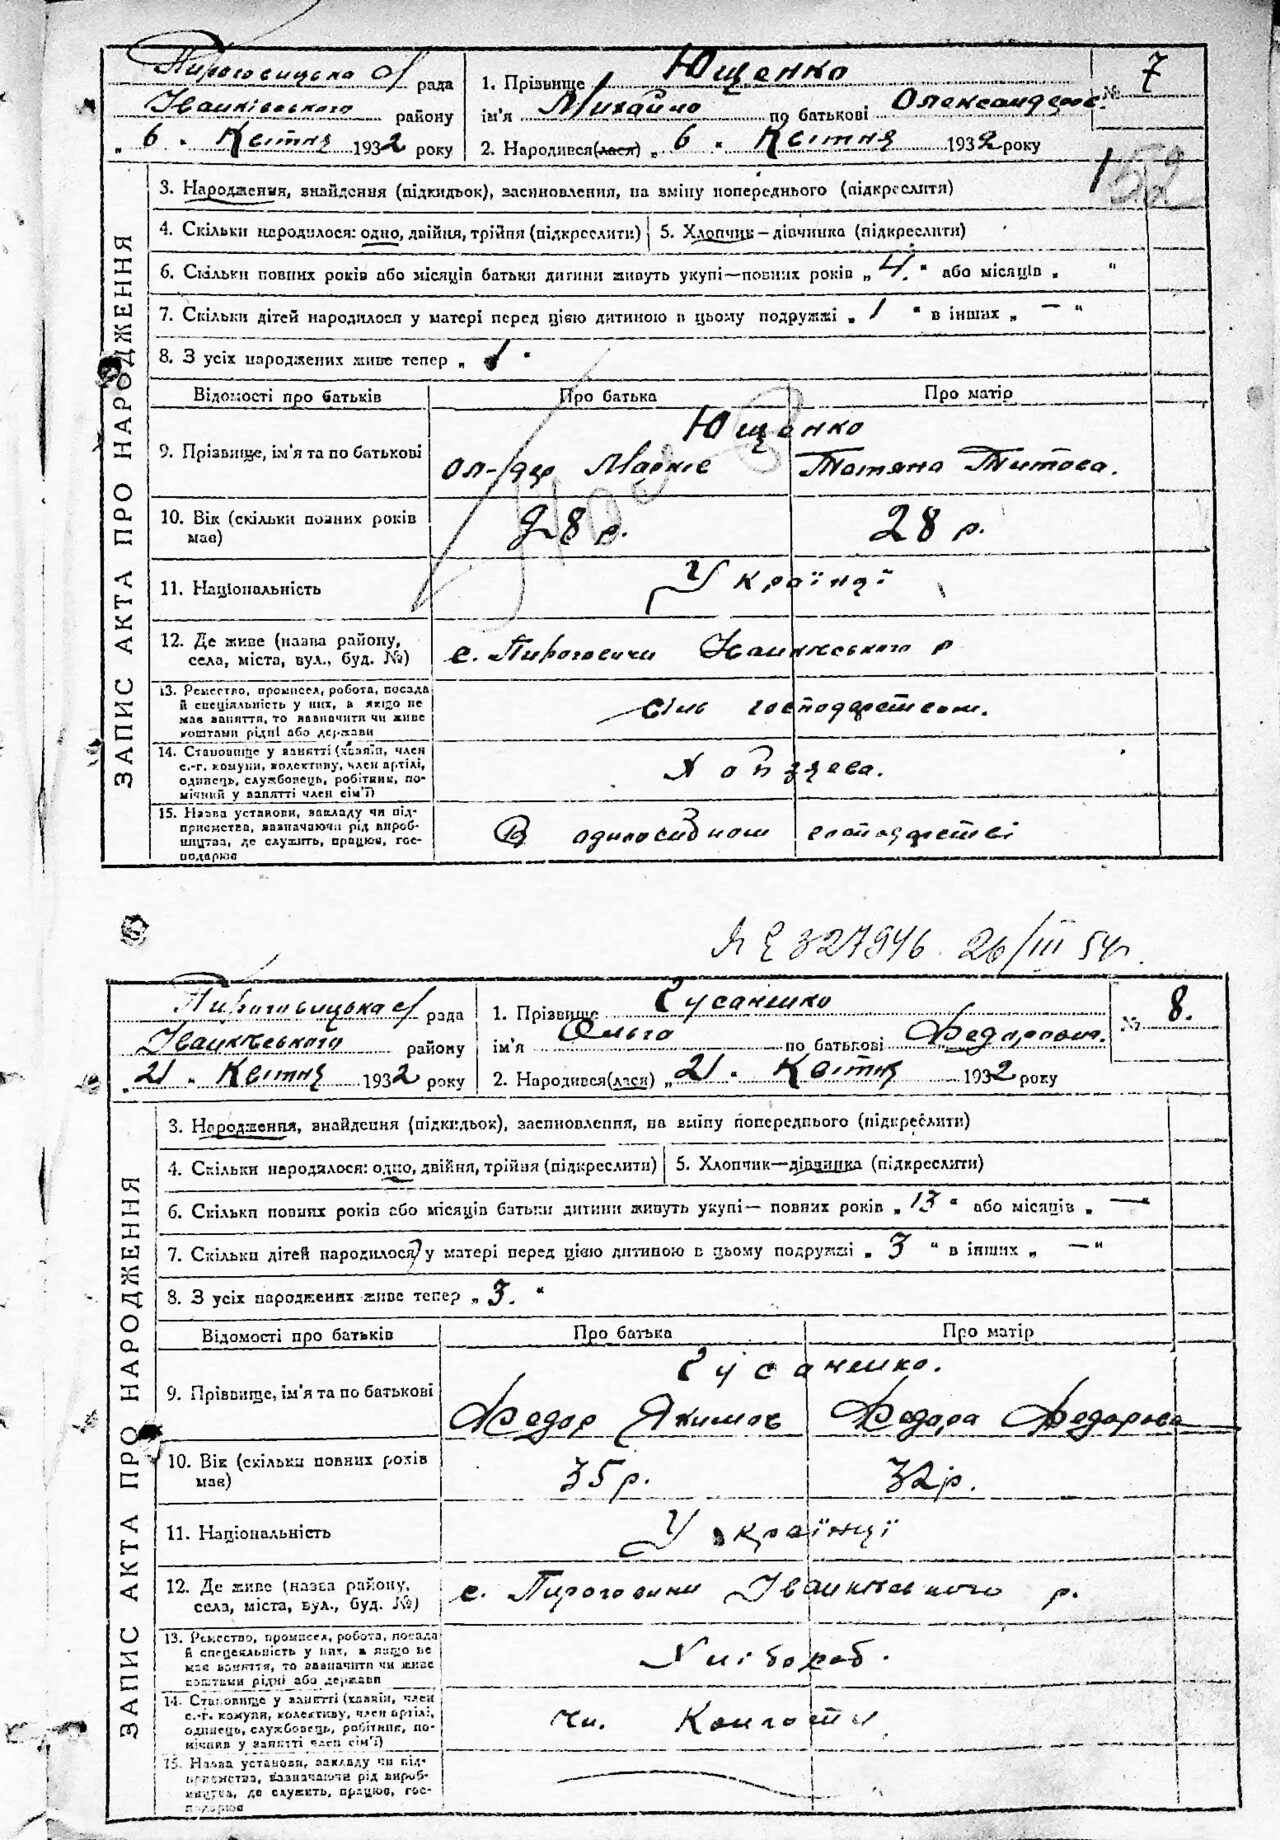 Пироговицька с/ рада
Іванківського району
„ 6 „ Квітня 1932 року
1. Прізвище Ющенко
ім'я Михайло по батькові Олександров.
2. Народився(лася) „ 6 „ Квітня 1932 року
№ 7
152
ЗАПИС АКТА ПРО НАРОДЖЕННЯ
3. Народження, знайдення (підкидьок), засиновлення, на зміну попереднього (підкреслити)
4. Скільки народилося: одно, двійня, трійня (підкреслити)
5. Хлопчик — дівчинка (підкреслити)
6. Скільки повних років або місяців батьки дитини живуть укупі—повних років „ 4. “ або місяців „ “
7. Скільки дітей народилося у матері перед цією дитиною в цьому подружжі „ 1 “ в інших „ — “
8. З усіх народжених живе тепер „ 1 “
Відомості про батьків Про батька Про матір
Ющенко
9. Прізвище, ім'я та по батькові Ол-дер Марків Татяна Титова.
10. Вік (скільки повних років має) 28 р. 28 р.
11. Національність Українці
12. Де живе (назва району,
села, міста, вул., буд. №) с. Пироговичи Іванківського р
13. Ремество, промисел, робота, посада
й спеціяльність у них, а якщо не
має заняття, то зазначити чи живе
коштами рідні або держави
сіль господарством.
14. Становище у занятті (хазяїн, член
с.-г. комуни, колективу, член артілі,
одинець, службовець, робітник, по-
мічний у занятті член сім'ї)
Хазяєва.
15. Назва установи, закладу чи під-
приємства, зазначаючи рід вироб-
ництва, де служить, працює, гос-
подарює
В одноосібном господарстві
327946 26/III 54р.
Пироговицька с/ рада
Іванківського району
„ 21 „ Квітня 1932 року
1. Прізвище Гусаненко
ім'я Ольга по батькові Федоровна.
2. Народився(лася) „ 21 „ Квітня 1932 року
№ 8.
ЗАПИС АКТА ПРО НАРОДЖЕННЯ
3. Народження, знайдення (підкидьок), засиновлення, на зміну попереднього (підкреслити)
4. Скільки народилося: одно, двійня, трійня (підкреслити)
5. Хлопчик—дівчинка (підкреслити)
6. Скільки повних років або місяців батьки дитини живуть укупі— повних років „ 13 “ або місяців „ — “
7. Скільки дітей народилося у матері перед цією дитиною в цьому подружжі „ 3 “ в інших „ — “
8. З усіх народжених живе тепер „ 3. “
Відомості про батьків Про батька Про матір
Гусаненко.
9. Прізвище, ім'я та по батькові Федор Якимов Федора Федорова
10. Вік (скільки повних років має) 35 р. 32 р.
11. Національність Українці
12. Де живе (назва району,
села, міста, вул., буд. №) с. Пироговичи Іванківського р.
13. Ремество, промисел, робота, посада
й спеціяльність у них, а якщо не
має заняття, то зазначити чи живе
коштами рідні або держави
Хлібороб.
14. Становище у занятті (хазяїн, член
с.-г. комуни, колективу, член артілі,
одинець, службовець, робітник, по-
мічний у занятті член сім'ї)
чл.
15. Назва установи, закладу чи під-
приємства, зазначаючи рід вироб-
ництва, де служить, працює, гос-
подарює